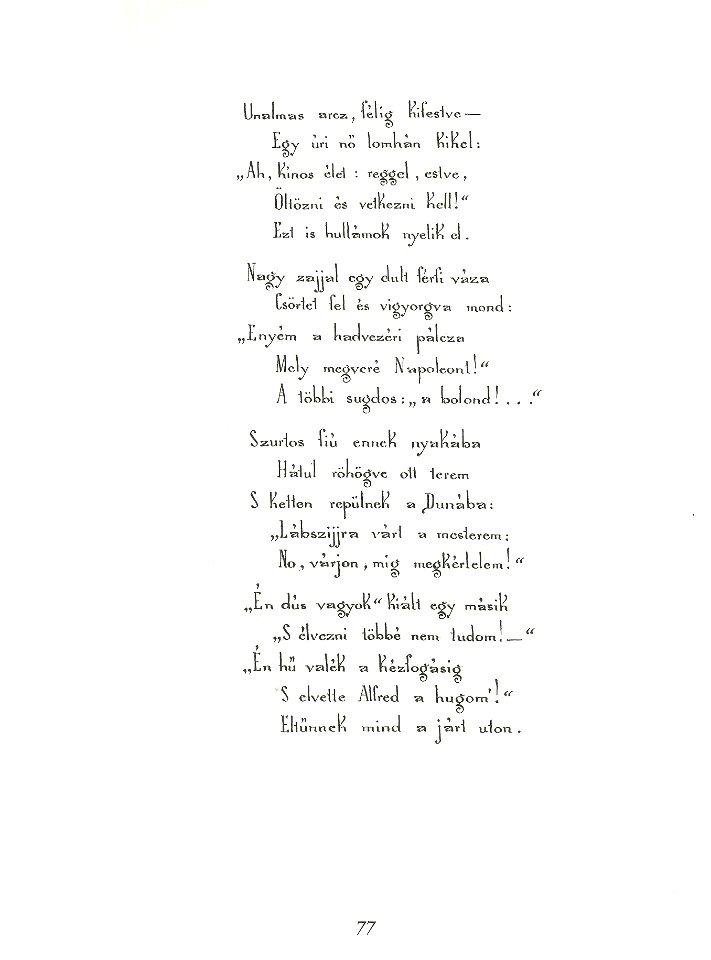 Unalmas arcz, félig kifestve —
Egy úri nő lomhán kikel:
„Ah, kinos élet : reggel, estve,
Öltözni és vetkezni kell!“
Ezt is hullámok nyelik el.
Nagy zajjal egy dult férfi váza
Csörtet fel és vigyorgva mond:
„Enyém a hadvezéri pálcza
Mely megveré Napoleont!“
A többi sugdos: „a bolond! . . .“
Szurtos fiú ennek nyakába
Hátul röhögve ott terem
S ketten repülnek a Dunába:
„Lábszijjra várt a mesterem;
No, várjon, mig megkérlelem!“
„Én dús vagyok“ kiált egy másik
„S élvezni többé nem tudom! —“
„Én hű valék a kézfogásig
'S elvette Alfred a hugom'!“
Eltünnek mind a járt uton.
77